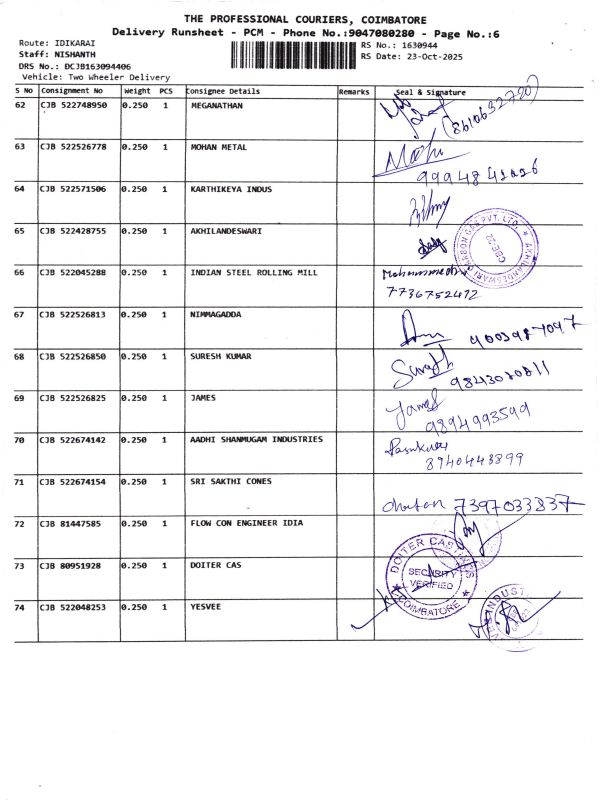 THE PROFESSIONAL COURIERS, COIMBATORE
Delivery Runsheet - PCM - Phone No.:9047080280 - Page No.:6
Route: IDIKARAI
RS No.: 1630944
Staff: NISHANTH
RS Date: 23-Oct-2025
DRS No.: DCJB163094406
Vehicle: Two Wheeler Delivery
S No Consignment No Weight PCS Consignee Details Remarks Seal & Signature
62 CJB 522748950 0.250 1 MEGANATHAN
(8610632790)
63 CJB 522526778 0.250 1 MOHAN METAL
64 CJB 522571506 0.250 1 KARTHIKEYA INDUS
65 CJB 522428755 0.250 1 AKHILANDESWARI
AKHILANDESWARI CARBON GAS PVT. LTD. ★ CBE-22
66 CJB 522045288 0.250 1 INDIAN STEEL ROLLING MILL
7736752412
67 CJB 522526813 0.250 1 NIMMAGADDA
9003987097
68 CJB 522526850 0.250 1 SURESH KUMAR
Suresh
69 CJB 522526825 0.250 1 JAMES
James
9894993599
70 CJB 522674142 0.250 1 AADHI SHANMUGAM INDUSTRIES
8940443899
71 CJB 522674154 0.250 1 SRI SAKTHI CONES
7397033837
72 CJB 81447585 0.250 1 FLOW CON ENGINEER IDIA
73 CJB 80951928 0.250 1 DOITER CAS
DOITER CASTINGS
SECURITY
VERIFIED
★ COIMBATORE ★
74 CJB 522048253 0.250 1 YESVEE